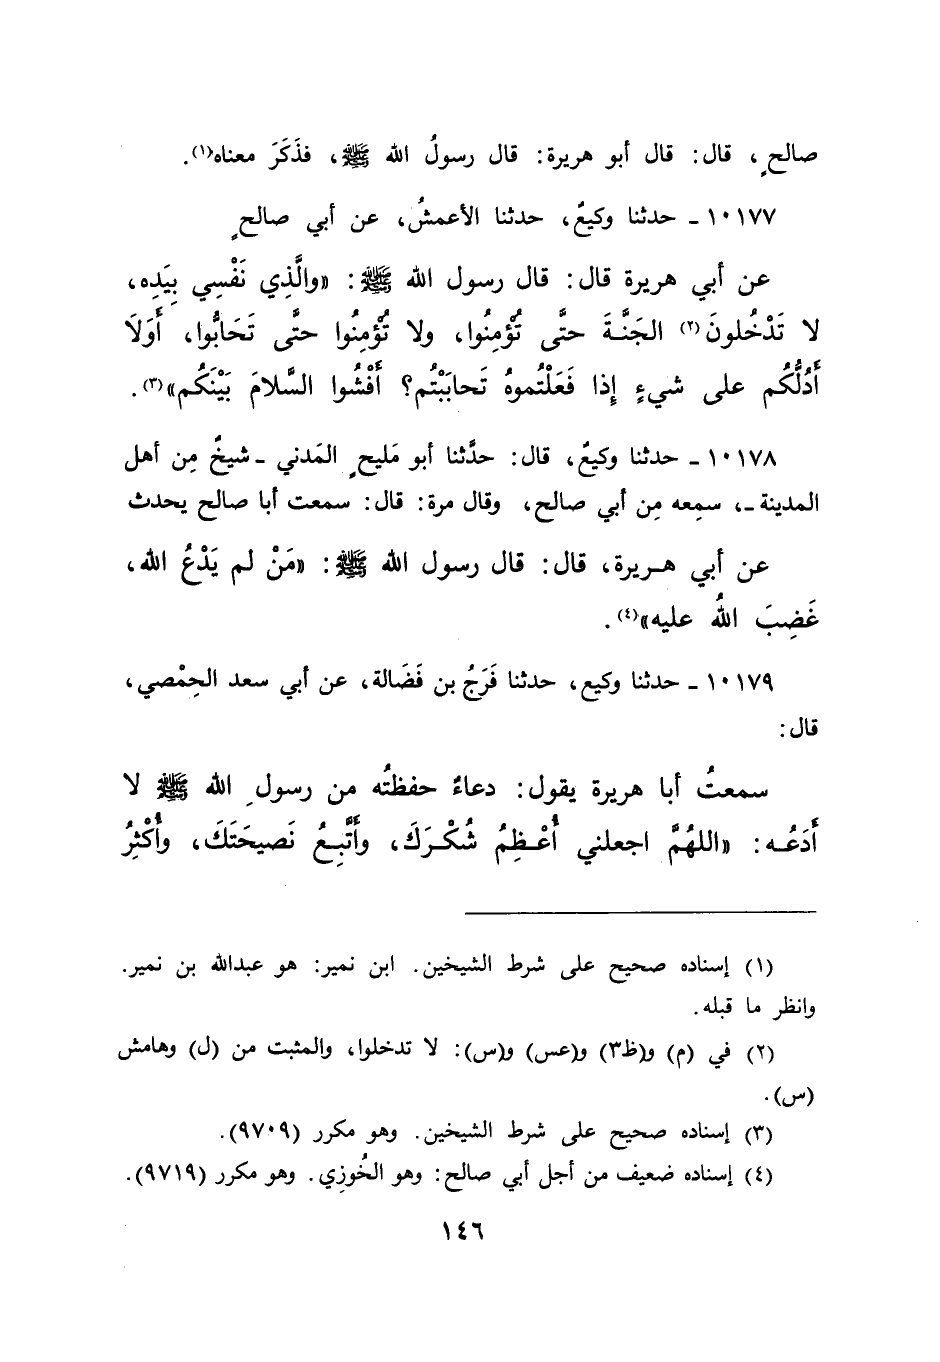 صالحٍ، قال: قال أبو هريرة: قال رسولُ الله ﷺ، فذَكَرَ معناه(١).
١٠١٧٧ ـ حدثنا وكيعٌ، حدثنا الأعمشُ، عن أبي صالحٍ
عن أبي هريرة قال: قال رسول الله ﷺ: «والَّذِي نَفْسِي بِيَدِه،
لا تَدْخُلونَ(٢) الجَنَّـةَ حتَّى تُؤْمِنُوا، ولا تُؤْمِنُوا حتَّى تَحَابُّوا، أَوَلَا
أَدُلُّكُم على شيءٍ إِذا فَعَلْتُموهُ تَحابَبْتُم؟ أَفْشُوا السَّلامَ بَيْنَكُم»(٣).
١٠١٧٨ ـ حدثنا وكيعٌ، قال: حدَّثنا أبو مَليحٍ المَدني ـ شيخٌ مِن أهل
المدينة ـ، سمِعه مِن أبي صالح، وقال مرة: قال: سمعت أبا صالح يحدث
عن أبي هـريرة، قال: قال رسول الله ﷺ: «مَنْ لم يَدْعُ الله،
غَضِبَ اللهُ عليه»(٤).
١٠١٧٩ ـ حدثنا وكيع، حدثنا فَرَجُ بن فَضَالة، عن أبي سعد الحِمْصي،
قال:
سمعتُ أبا هريرة يقول: دعاءٌ حفظتُه من رسولِ الله ﷺ لا
أَدَعُـه: «اللهُمَّ اجعلني أُعْـظِمُ شُكْـرَكَ، وأَتَّبِـعُ نَصيحَتَكَ، وأُكْثِرُ
(١) إسناده صحيح على شرط الشيخين. ابن نمير: هو عبدالله بن نمير.
وانظر ما قبله.
(٢) في (م) و(ظ٣) و(عس) و(س): لا تدخلوا، والمثبت من (ل) وهامش
(س).
(٣) إسناده صحيح على شرط الشيخين. وهو مكرر (٩٧٠٩).
(٤) إسناده ضعيف من أجل أبي صالح: وهو الخُوزِي. وهو مكرر (٩٧١٩).
١٤٦